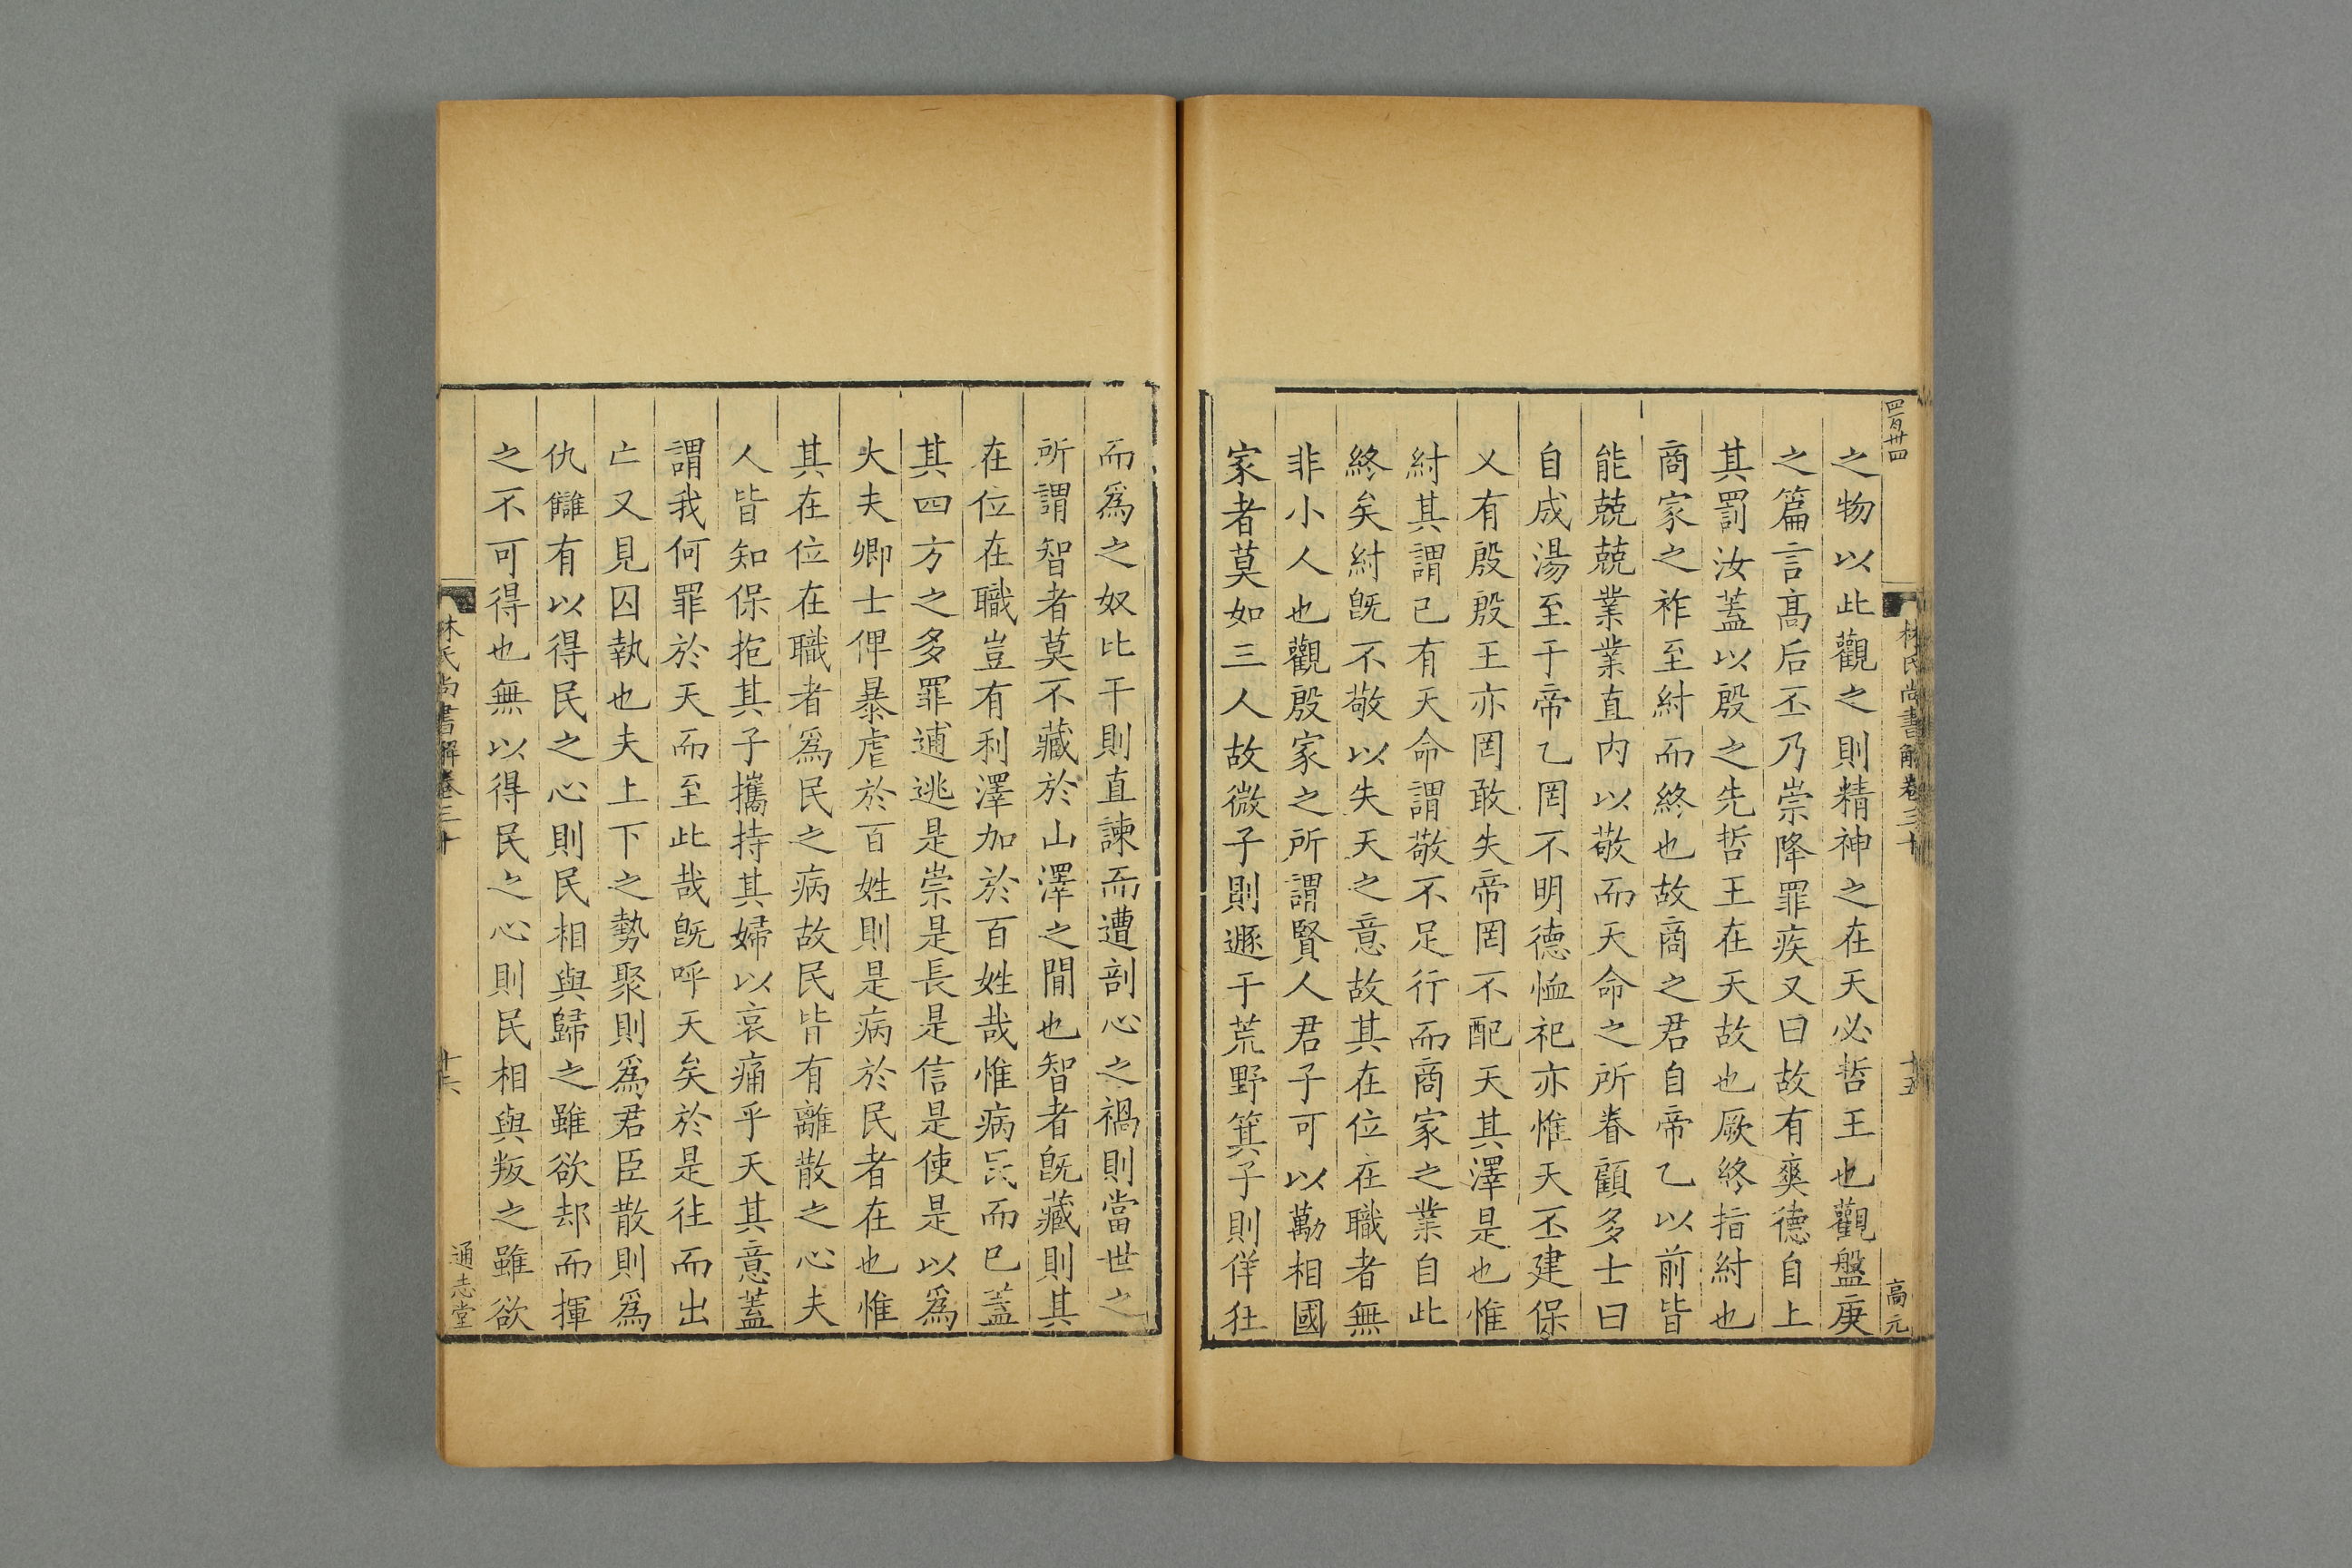 四百卅四
林氏尚書解卷三十
十五
高元
之物以此觀之則精神之在天必哲王也觀盤庚
之篇言高后丕乃崇降罪疾又曰故有爽德自上
其罰汝蓋以殷之先哲王在天故也厥終指紂也
商家之祚至紂而終也故商之君自帝乙以前皆
能兢兢業業直内以敬而天命之所眷顧多士曰
自成湯至于帝乙罔不明德恤祀亦惟天丕建保
乂有殷殷王亦罔敢失帝罔不配天其澤是也惟
紂其謂已有天命謂敬不足行而商家之業自此
終矣紂旣不敬以失天之意故其在位在職者無
非小人也觀殷家之所謂賢人君子可以勱相國
家者莫如三人故微子則遯于荒野箕子則佯狂
而爲之奴比干則直諫而遭剖心之禍則當世之
所謂智者莫不藏於山澤之間也智者旣藏則其
在位在職豈有利澤加於百姓哉惟病民而已蓋
其四方之多罪逋逃是崇是長是信是使是以爲
大夫卿士俾暴虐於百姓則是病於民者在也惟
其在位在職者爲民之病故民皆有離散之心夫
人皆知保抱其子攜持其婦以哀痛乎天其意蓋
謂我何罪於天而至此哉旣呼天矣於是徃而出
亡又見囚執也夫上下之勢聚則爲君臣散則爲
仇讎有以得民之心則民相與歸之雖欲却而揮
之不可得也無以得民之心則民相與叛之雖欲
林氏尚書解卷三十
十六
通志堂